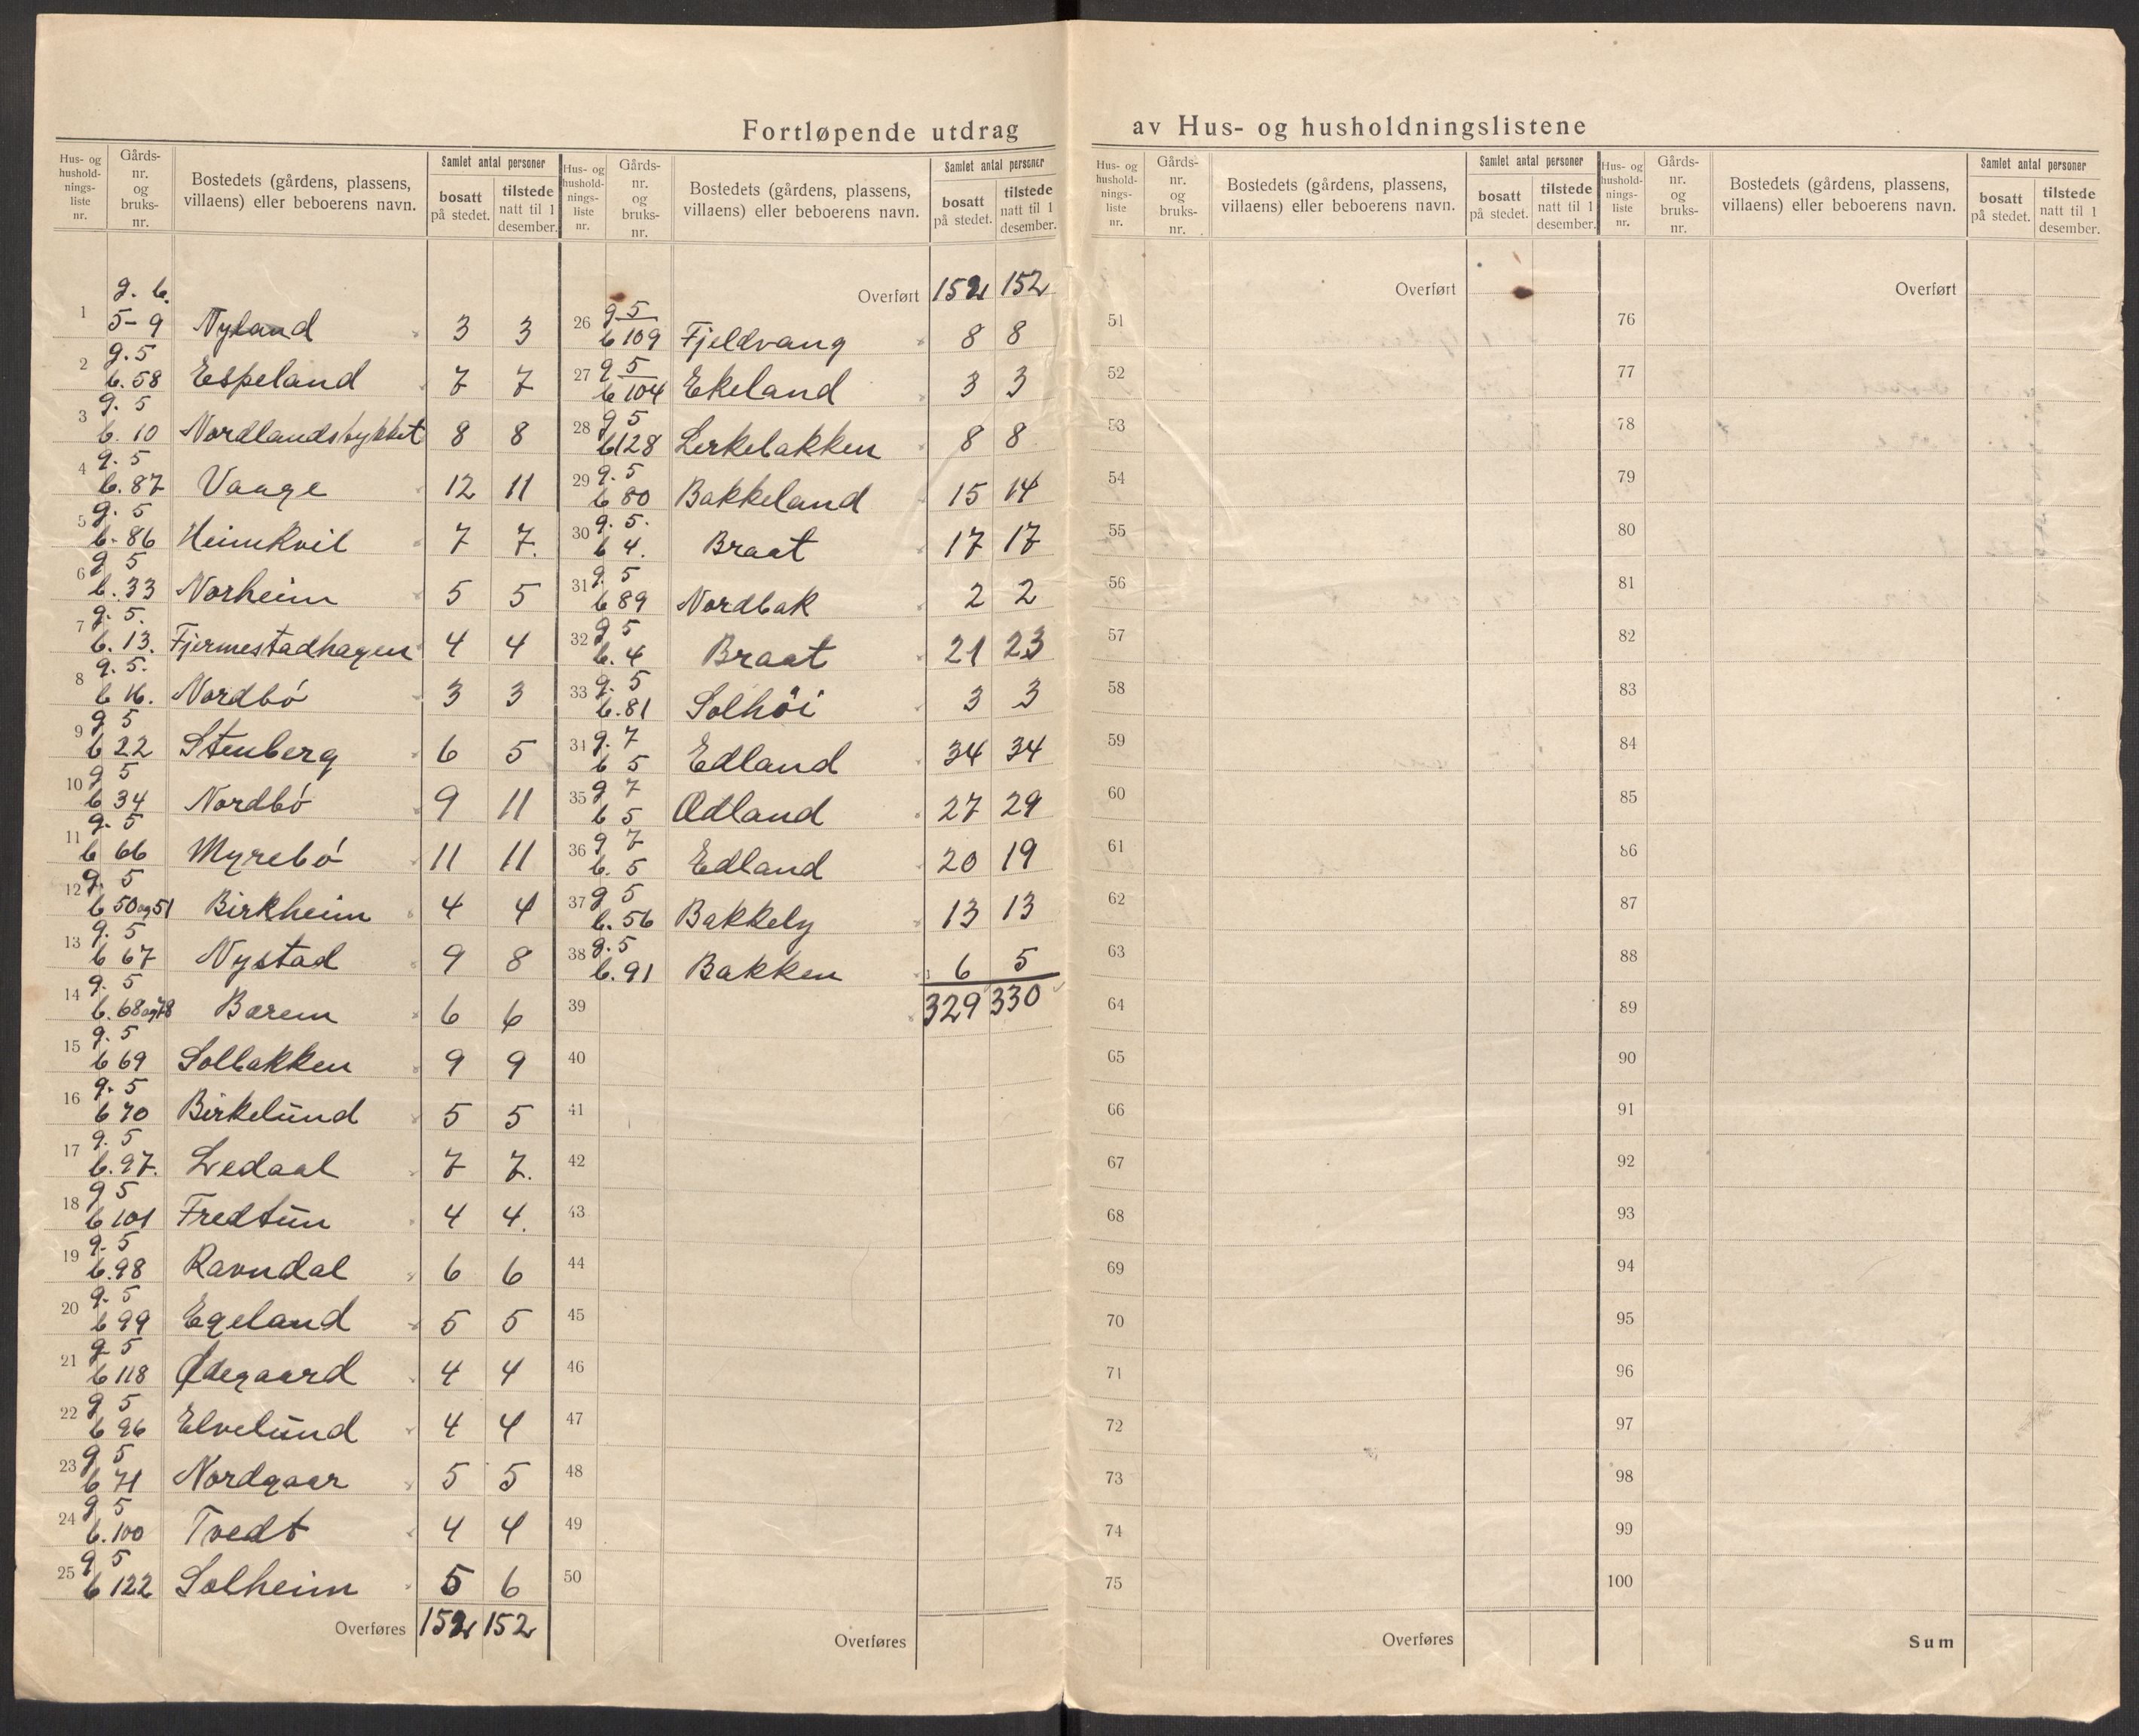 Fortløpende utdrag av Hus- og husholdningslistene
Hus- og husholdnings-liste nr. | Gårds-nr. og bruks-nr. | Bostedets (gårdens, plassens, villaens) eller beboerens navn. | Samlet antal personer: bosatt på stedet. | tilstede natt til 1 desember.
g. b.
1 | 5-9 | Nyland | 3 | 3
2 | g. 5 b. 58 | Espeland | 7 | 7
3 | g. 5 b. 10 | Nordlandstykket | 8 | 8
4 | g. 5 b. 87 | Vaage | 12 | 11
5 | g. 5 b. 86 | Heimkvil | 7 | 7.
6 | g 5 b. 33 | Norheim | 5 | 5
7 | g. 5. b. 13. | Fjermestadhagen | 4 | 4
8 | g. 5. b 16. | Nordbó | 3 | 3
9 | g 5 b 22 | Stenberg | 6 | 5
10 | g 5 b 34 | Nordbó | 9 | 11
11 | g. 5 b 66 | Myrebó | 11 | 11
12 | g. 5 b 50 og 51 | Birkheim | 4 | 4
13 | g. 5 b 67 | Nystad | 9 | 8
14 | g. 5 b. 68 og 78 | Barem | 6 | 6
15 | g. 5 b 69 | Solbakken | 9 | 9
16 | g. 5 b 70 | Birkelund | 5 | 5
17 | g. 5 b. 97. | Ledaal | 7 | 7.
18 | g 5 b 101 | Fredtun | 4 | 4.
19 | g. 5 b. 98 | Ravndal | 6 | 6
20 | g. 5 b 99 | Egeland | 5 | 5
21 | g 5 b 118 | Ødegaard | 4 | 4
22 | g 5 b 96 | Elvelund | 4 | 4
23 | g 5 b 71 | Nordgaar | 5 | 5
24 | g 5 b. 100 | Tvedt | 4 | 4
25 | g 5 b 122 | Solheim | 5 | 6
Overføres | 152 | 152
Hus- og husholdnings-liste nr. | Gårds-nr. og bruks-nr. | Bostedets (gårdens, plassens, villaens) eller beboerens navn. | Samlet antal personer: bosatt på stedet. | tilstede natt til 1 desember.
Overført | 152 | 152
26 | g 5 b 109 | Fjeldvang | 8 | 8
27 | g 5 b 104 | Ekeland | 3 | 3
28 | g 5 b 128 | Lerkebakken | 8 | 8
29 | g. 5 b 80 | Bakkeland | 15 | 14
30 | g. 5. b 4. | Braat | 17 | 17
31 | g. 5 b 89 | Nordbak | 2 | 2
32 | g 5 b. 4 | Braat | 21 | 23
33 | g. 5 b. 81 | Solhöi | 3 | 3
31 | g. 7 b 5 | Edland | 34 | 34
35 | g 7 b 5 | Ødland | 27 | 29
36 | g 7 b. 5 | Edland | 20 | 19
37 | g 5 b. 56 | Bakkely | 13 | 13
38 | g. 5 b. 91 | Bakken | 6 | 5
39 | 329 | 330
40
41
42
43
44
45
46
47
48
49
50
Overføres
Hus- og husholdnings-liste nr. | Gårds-nr. og bruks-nr. | Bostedets (gårdens, plassens, villaens) eller beboerens navn. | Samlet antal personer: bosatt på stedet. | tilstede natt til 1 desember.
Overført
51
52
53
54
55
56
57
58
59
60
61
62
63
64
65
66
67
68
69
70
71
72
73
74
75
Overføres
Hus- og husholdnings-liste nr. | Gårds-nr. og bruks-nr. | Bostedets (gårdens, plassens, villaens) eller beboerens navn. | Samlet antal personer: bosatt på stedet. | tilstede natt til 1 desember.
Overført
76
77
78
79
80
81
82
83
84
85
86
87
88
89
90
91
92
93
94
95
96
97
98
99
100
Sum